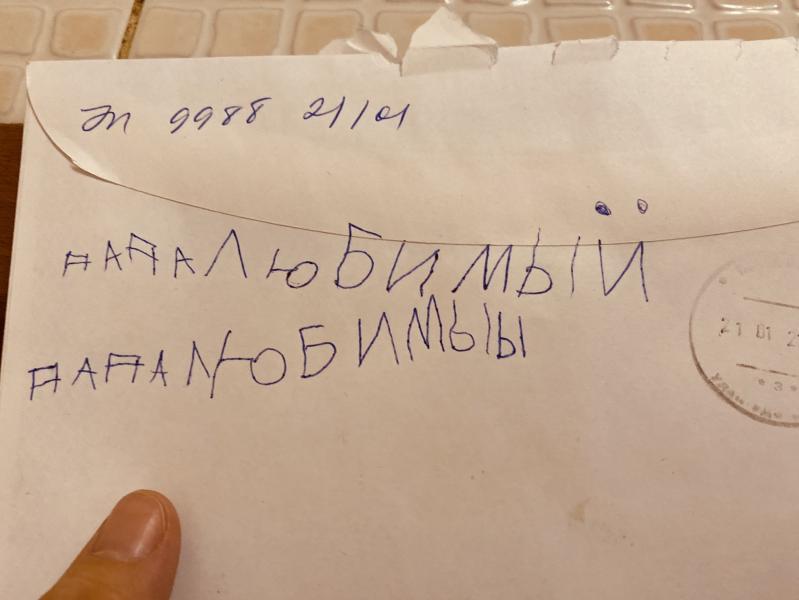 Эл 9988 21/01
ПАПА ЛЮБИМЫЙ
ПАПА ЛЮБИМЫЫ
21 01 2
* 3 *